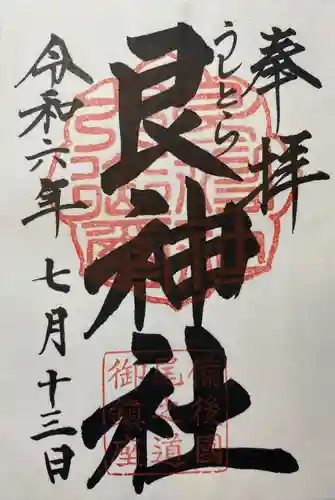 奉拝
うしとら
艮神社
令和六年 七月十三日
備後国
尾之道
御鎮座